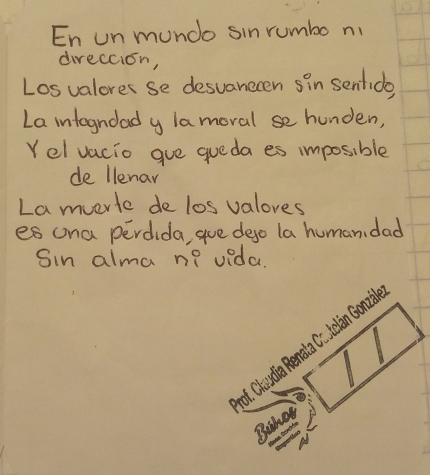 En un mundo sin rumbo ni
dirección,
Los valores se desvanecen sin sentido,
La integridad y la moral se hunden,
Y el vacío que queda es imposible
de llenar
La muerte de los valores
es una pérdida, que dejo la humanidad
Sin alma ni vida.
Prof. Claudia Renata Castelán González
Búhos